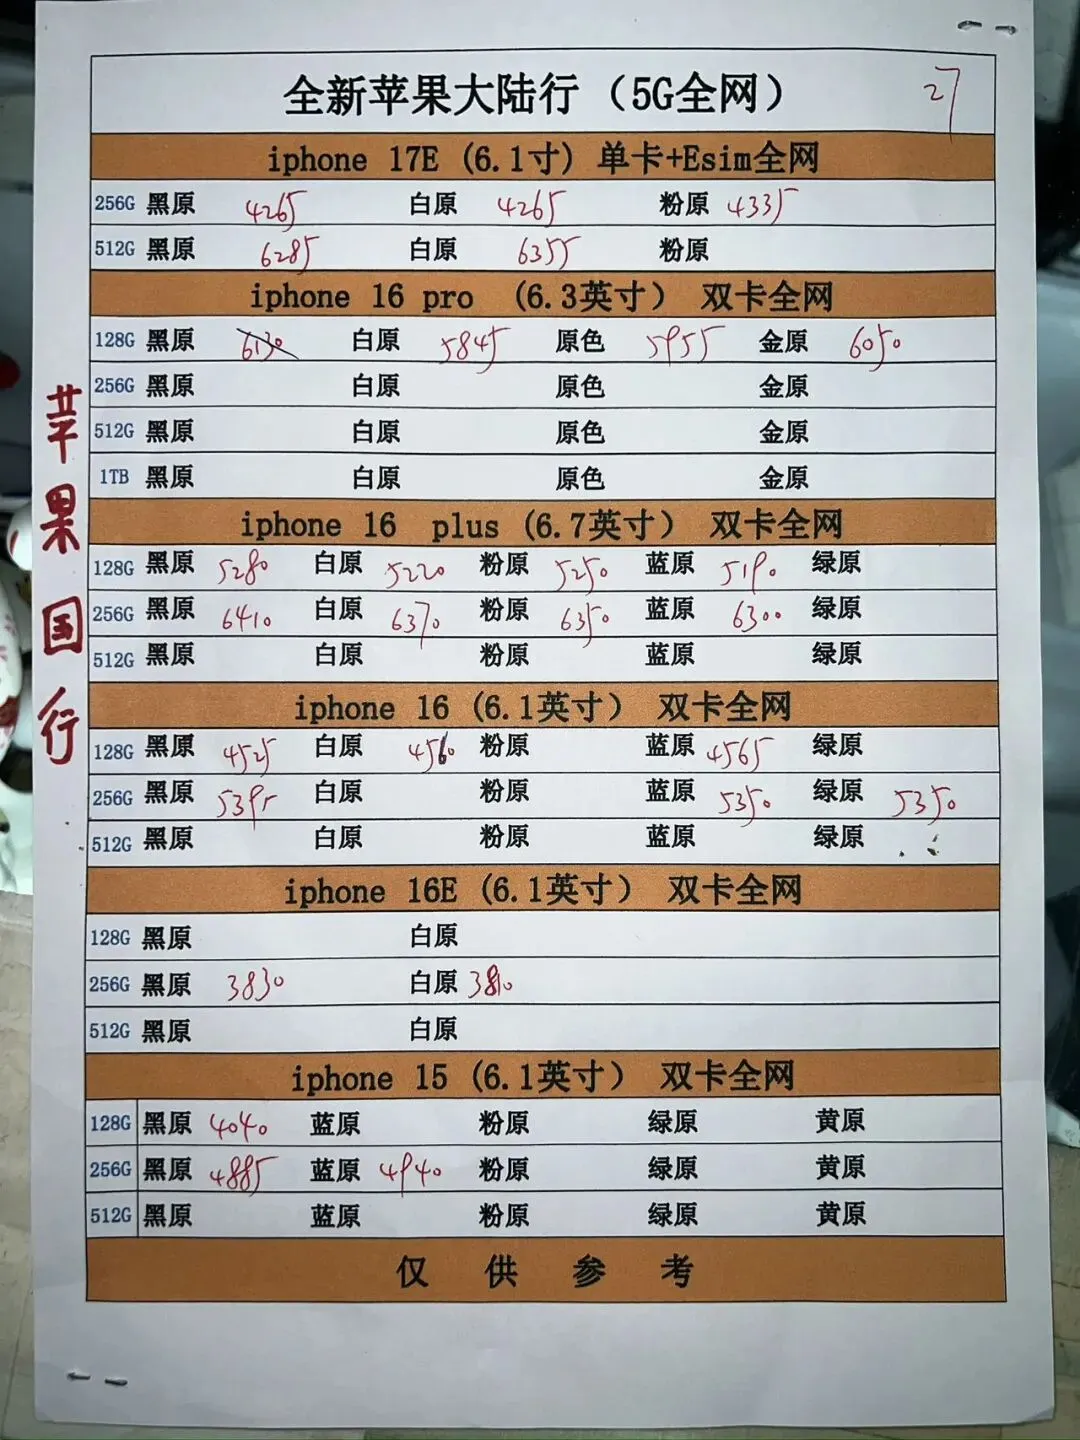 全新苹果大陆行（5G全网） 27
iphone 17E (6.1寸) 单卡+Esim全网
256G 黑原 4265 白原 4265 粉原 4335
512G 黑原 6285 白原 6355 粉原
iphone 16 pro （6.3英寸） 双卡全网
128G 黑原 6130 白原 5845 原色 5955 金原 6050
256G 黑原 白原 原色 金原
512G 黑原 白原 原色 金原
1TB 黑原 白原 原色 金原
iphone 16 plus (6.7英寸） 双卡全网
128G 黑原 5280 白原 5220 粉原 5250 蓝原 5190 绿原
256G 黑原 6410 白原 6370 粉原 6350 蓝原 6300 绿原
512G 黑原 白原 粉原 蓝原 绿原
iphone 16 (6.1英寸） 双卡全网
128G 黑原 4525 白原 4560 粉原 蓝原 4565 绿原
256G 黑原 5395 白原 粉原 蓝原 5350 绿原 5350
512G 黑原 白原 粉原 蓝原 绿原
iphone 16E (6.1英寸） 双卡全网
128G 黑原 白原
256G 黑原 3830 白原 3810
512G 黑原 白原
iphone 15 (6.1英寸） 双卡全网
128G 黑原 4040 蓝原 粉原 绿原 黄原
256G 黑原 4885 蓝原 4940 粉原 绿原 黄原
512G 黑原 蓝原 粉原 绿原 黄原
仅供参考
苹果国行